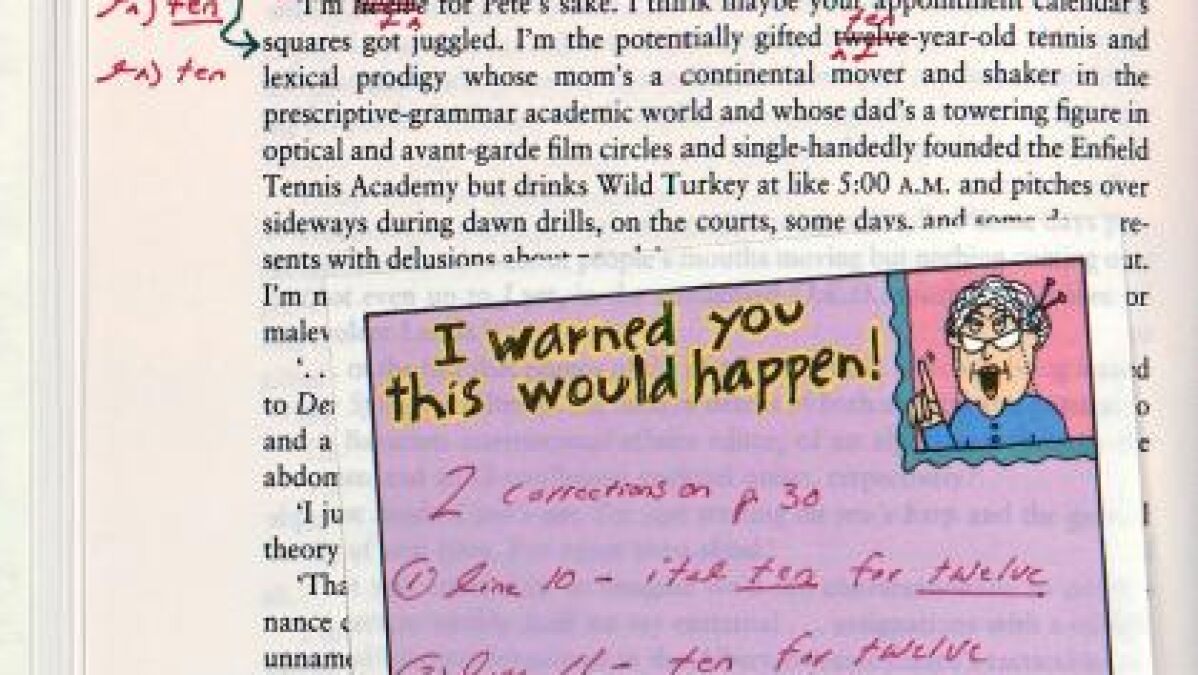 ten
'I'm for Pete's sake. I think maybe your appointment calendar's
ten
squares got juggled. I'm the potentially gifted twelve-year-old tennis and
ten
lexical prodigy whose mom's a continental mover and shaker in the
prescriptive-grammar academic world and whose dad's a towering figure in
optical and avant-garde film circles and single-handedly founded the Enfield
Tennis Academy but drinks Wild Turkey at like 5:00 A.M. and pitches over
sideways during dawn drills, on the courts, some days, and some days pre-
sents with delusions about people's mouths moving but nothing coming out.
I'm n
malev
'. .
to De
and a
abdom
'I ju
theory
'Tha
nance
unname
I warned you
this would happen!
2 corrections on p 30
① line 10 - ital ten for twelve
② line 11 - ten for twelve